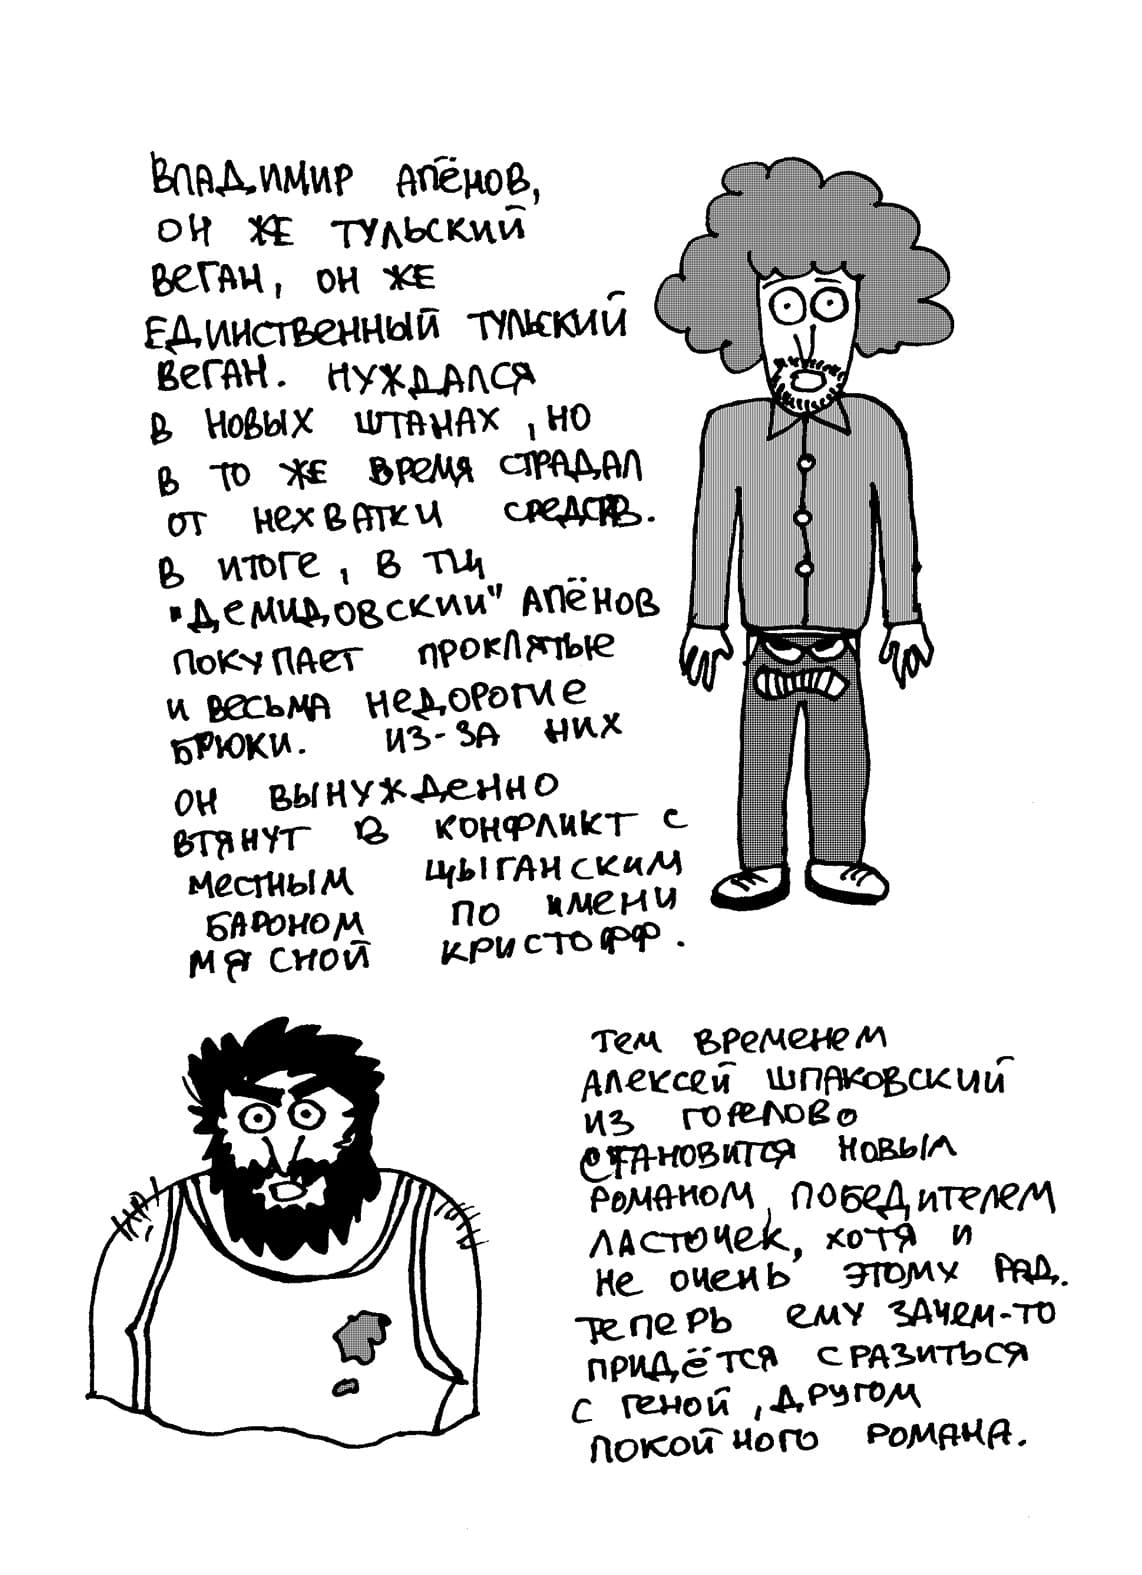 ВЛАДИМИР АПЁНОВ,
ОН ЖЕ ТУЛЬСКИЙ
ВЕГАН, ОН ЖЕ
ЕДИНСТВЕННЫЙ ТУЛЬСКИЙ
ВЕГАН. НУЖДАЛСЯ
В НОВЫХ ШТАНАХ, НО
В ТО ЖЕ ВРЕМЯ СТРАДАЛ
ОТ НЕХВАТКИ СРЕДСТВ.
В ИТОГЕ, В ТЦ
"ДЕМИДОВСКИЙ" АПЁНОВ
ПОКУПАЕТ ПРОКЛЯТЫЕ
И ВЕСЬМА НЕДОРОГИЕ
БРЮКИ. ИЗ-ЗА НИХ
ОН ВЫНУЖДЕННО
ВТЯНУТ В КОНФЛИКТ С
МЕСТНЫМ ЦЫГАНСКИМ
БАРОНОМ ПО ИМЕНИ
МЯСНОЙ КРИСТОФФ.
ТЕМ ВРЕМЕНЕМ
АЛЕКСЕЙ ШПАКОВСКИЙ
ИЗ ГОРЕЛОВО
СТАНОВИТСЯ НОВЫМ
РОМАНОМ, ПОБЕДИТЕЛЕМ
ЛАСТОЧЕК, ХОТЯ И
НЕ ОЧЕНЬ ЭТОМУ РАД.
ТЕПЕРЬ ЕМУ ЗАЧЕМ-ТО
ПРИДЁТСЯ СРАЗИТЬСЯ
С ГЕНОЙ, ДРУГОМ
ПОКОЙНОГО РОМАНА.